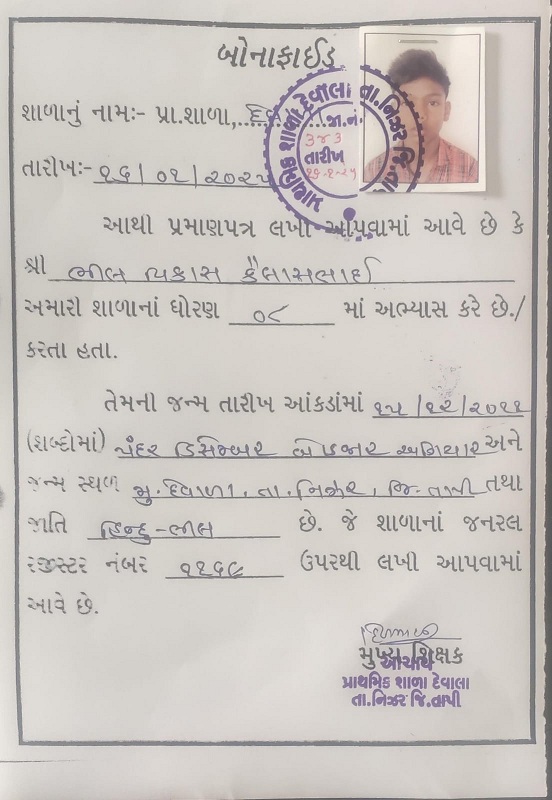 બોનાફાઈડ
શાળાનું નામઃ- પ્રા.શાળા,
પ્રાથમિક શાળા દેવાલા તા.નિઝર જિ.તાપી
જા.નં.
૩૪૩
તારીખ
તારીખઃ- ૧૬/૦૧/૨૦૨૫
આથી પ્રમાણપત્ર લખી આપવામાં આવે છે કે
શ્રી ભીલ વિકાસ કૈલાસભાઈ
અમારી શાળાનાં ધોરણ ૦૮ માં અભ્યાસ કરે છે./
કરતા હતા.
તેમની જન્મ તારીખ આંકડાંમાં ૧૫/૧૨/૨૦૧૧
(શબ્દોમાં) પંદર ડિસેમ્બર બે હજાર અગિયાર અને
જન્મ સ્થળ મુ.દેવાળા. તા.નિઝર, જિ.તાપી તથા
જાતિ હિન્દુ-ભીલ છે. જે શાળાનાં જનરલ
રજીસ્ટર નંબર ૧૧૬૯ ઉપરથી લખી આપવામાં
આવે છે.
મુખ્ય શિક્ષક
આચાર્ય
પ્રાથમિક શાળા દેવાલા
તા.નિઝર જિ.તાપી